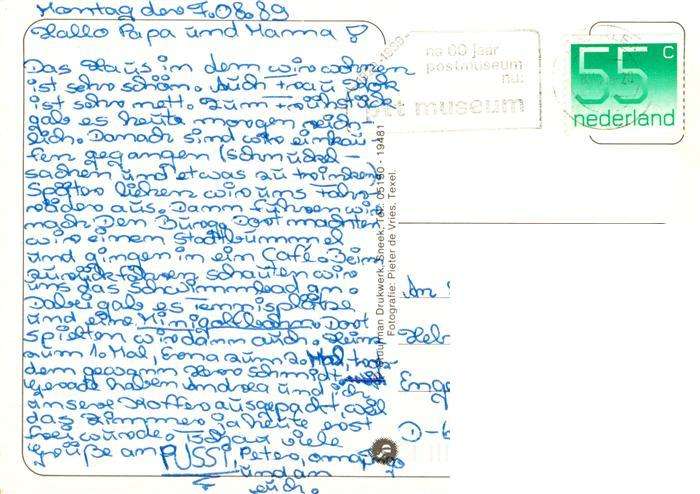 Montag den 7.08.89
Hallo Papa und Mama!
Das Haus in dem wir wohnen
ist sehr schön. Auch Frau Bock
ist sehr nett. Zum Frühstück
gab es heute morgen reich-
lich. Danach sind wir einkau-
fen gegangen (schmudel-
sachen und etwas zu trinken).
Später liehen wir uns Fahr-
räder aus. Dann fuhren wir
nach Den Burg. Dort machten
wir einen Stadtbummel
und gingen in ein Café. Beim
zurückfahren schauten wir
uns das Schwimmbad an.
Dabei gab es Tennisplätze
und ein Minigolf Dort
spielten wir dann auch.
zum 1. Mal, zum 2. Mal, trotz
dem gewann Herr Schmidt
Gerade haben Andrea und ich
unsere Koffer ausgepackt, weil
das Zimmer ja heute erst
frei wurde. Tschau viele
Grüße an PUSSI, Peter, Oma
und an
euch.
na 60 jaar
postmuseum
nu:
ptt museum
55 c
nederland
Drukwerk, Sneek, Tel. 05150 - 19481
Fotografie: Pieter de Vries, Texel.
An
Enge
D-6